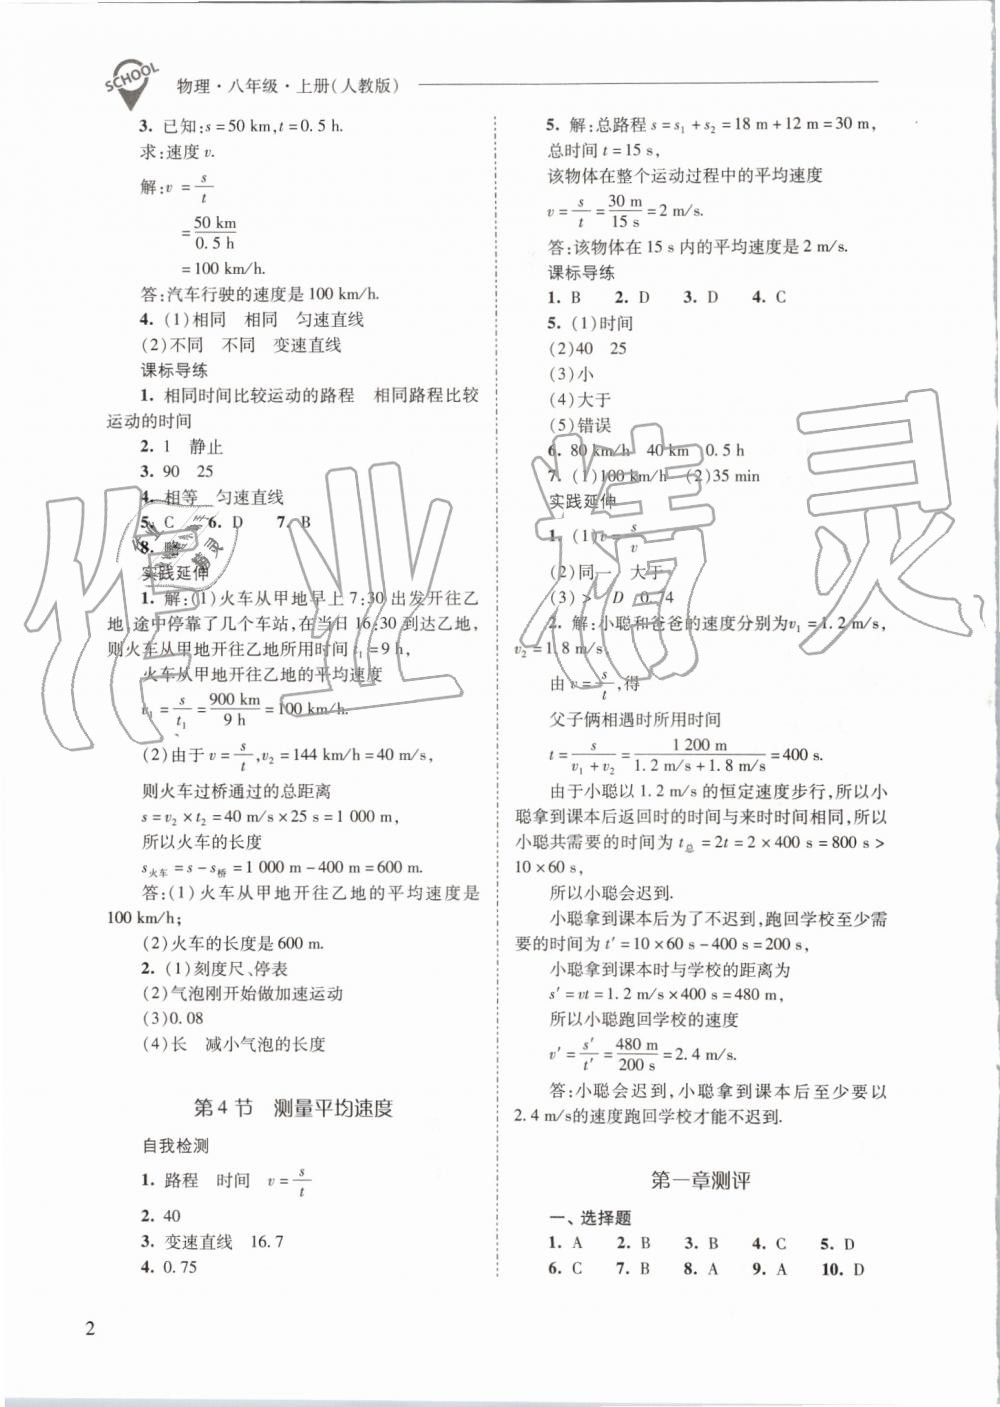 SCHOOL
物理·八年级·上册(人教版)
3. 已知:s=50 km,t=0.5 h.
求:速度 v.
解:v = s/t
= 50 km/0.5 h
= 100 km/h.
答:汽车行驶的速度是 100 km/h.
4. (1)相同 相同 匀速直线
(2)不同 不同 变速直线
课标导练
1. 相同时间比较运动的路程 相同路程比较
运动的时间
2. 1 静止
3. 90 25
4. 相等 匀速直线
5. C 6. D 7. B
8. 略
实践延伸
1. 解:(1)火车从甲地早上 7:30 出发开往乙
地,途中停靠了几个车站,在当日 16:30 到达乙地,
则火车从甲地开往乙地所用时间 t₁=9 h,
火车从甲地开往乙地的平均速度
v₁ = s/t₁ = 900 km/9 h = 100 km/h.
(2)由于 v = s/t,v₂=144 km/h=40 m/s,
则火车过桥通过的总距离
s=v₂×t₂=40 m/s×25 s=1 000 m,
所以火车的长度
s火车=s-s桥=1 000 m-400 m=600 m.
答:(1)火车从甲地开往乙地的平均速度是
100 km/h;
(2)火车的长度是 600 m.
2. (1)刻度尺、停表
(2)气泡刚开始做加速运动
(3)0.08
(4)长 减小气泡的长度
第 4 节 测量平均速度
自我检测
1. 路程 时间 v = s/t
2. 40
3. 变速直线 16.7
4. 0.75
5. 解:总路程 s=s₁+s₂=18 m+12 m=30 m,
总时间 t=15 s,
该物体在整个运动过程中的平均速度
v = s/t = 30 m/15 s = 2 m/s.
答:该物体在 15 s 内的平均速度是 2 m/s.
课标导练
1. B 2. D 3. D 4. C
5. (1)时间
(2)40 25
(3)小
(4)大于
(5)错误
6. 80 km/h 40 km 0.5 h
7. (1)100 km/h (2)35 min
实践延伸
1. (1)v = s/v
(2)同一 大于
(3)> D 0.74
2. 解:小聪和爸爸的速度分别为v₁=1.2 m/s,
v₂=1.8 m/s,
由 v = s/t,得
父子俩相遇时所用时间
t = s/(v₁+v₂) = 1 200 m/(1.2 m/s+1.8 m/s) = 400 s.
由于小聪以 1.2 m/s 的恒定速度步行,所以小
聪拿到课本后返回时的时间与来时时间相同,所以
小聪共需要的时间为 t总=2t=2×400 s=800 s>
10×60 s,
所以小聪会迟到.
小聪拿到课本后为了不迟到,跑回学校至少需
要的时间为 t′=10×60 s-400 s=200 s,
小聪拿到课本时与学校的距离为
s′=vt=1.2 m/s×400 s=480 m,
所以小聪跑回学校的速度
v′ = s′/t′ = 480 m/200 s = 2.4 m/s.
答:小聪会迟到,小聪拿到课本后至少要以
2.4 m/s的速度跑回学校才能不迟到.
第一章测评
一、选择题
1. A 2. B 3. B 4. C 5. D
6. C 7. B 8. A 9. A 10. D
2
作业精灵